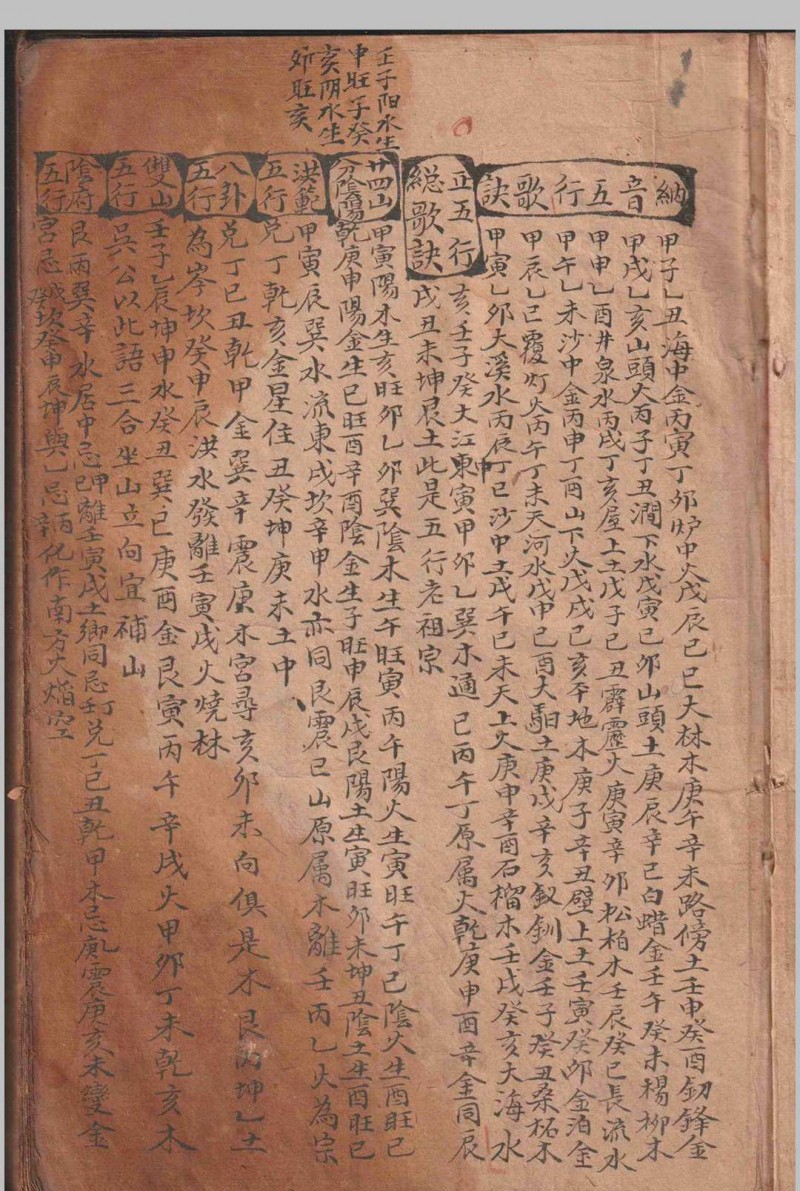 納音五行歌訣
甲子乙丑海中金丙寅丁卯炉中火戊辰己巳大林木庚午辛未路傍土壬申癸酉釖鋒金
甲戌乙亥山頭火丙子丁丑澗下水戊寅己卯山頭土庚辰辛巳白蜡金壬午癸未楊柳木
甲申乙酉井泉水丙戌丁亥屋上土戊子己丑霹靂火庚寅辛卯松柏木壬辰癸巳長流水
甲午乙未沙中金丙申丁酉山下火戊戌己亥平地木庚子辛丑壁上土壬寅癸卯金泊金
甲辰乙巳覆灯火丙午丁未天河水戊申己酉大馹土庚戌辛亥釵釧金壬子癸丑桑柘木
甲寅乙卯大溪水丙辰丁巳沙中土戊午己未天上火庚申辛酉石榴木壬戌癸亥大海水
正五行總歌訣
亥壬子癸大江東寅甲卯乙巽木通巳丙午丁原属火乾庚申酉辛金同辰
戌丑未坤艮土此是五行老祖宗
壬子阳水生
申旺子癸
亥阴水生
卯旺亥
廿四山分陰陽
甲寅陽木生亥旺卯乙卯巽陰木生午旺寅丙午陽火生寅旺午丁巳陰火生酉旺巳
乾庚申陽金生巳旺酉辛酉陰金生子旺申辰戌艮陽土生寅旺卯未坤丑陰土生酉旺巳
洪範五行
甲寅辰巽水流東戌坎辛申水亦同艮震巳山原属木離壬丙乙火為宗
兌丁乾亥金星住丑癸坤庚未土中
八卦五行
兌丁巳丑乾甲金巽辛震庚木宮尋亥卯未向俱是木艮丙坤乙土
為岑坎癸申辰洪水發離壬寅戌火燒林
雙山五行
壬子乙辰坤申水癸丑巽巳庚酉金艮寅丙午辛戌火甲卯丁未乾亥木
吳公以此語三合坐山立向宜補山
陰府五行
艮丙巽辛水居中忌甲巳離壬寅戌土鄉同忌壬丁兌丁巳丑乾甲木忌庚震庚亥未變金
宮忌坎癸申辰坤與乙忌丙辛化作南方火焰空